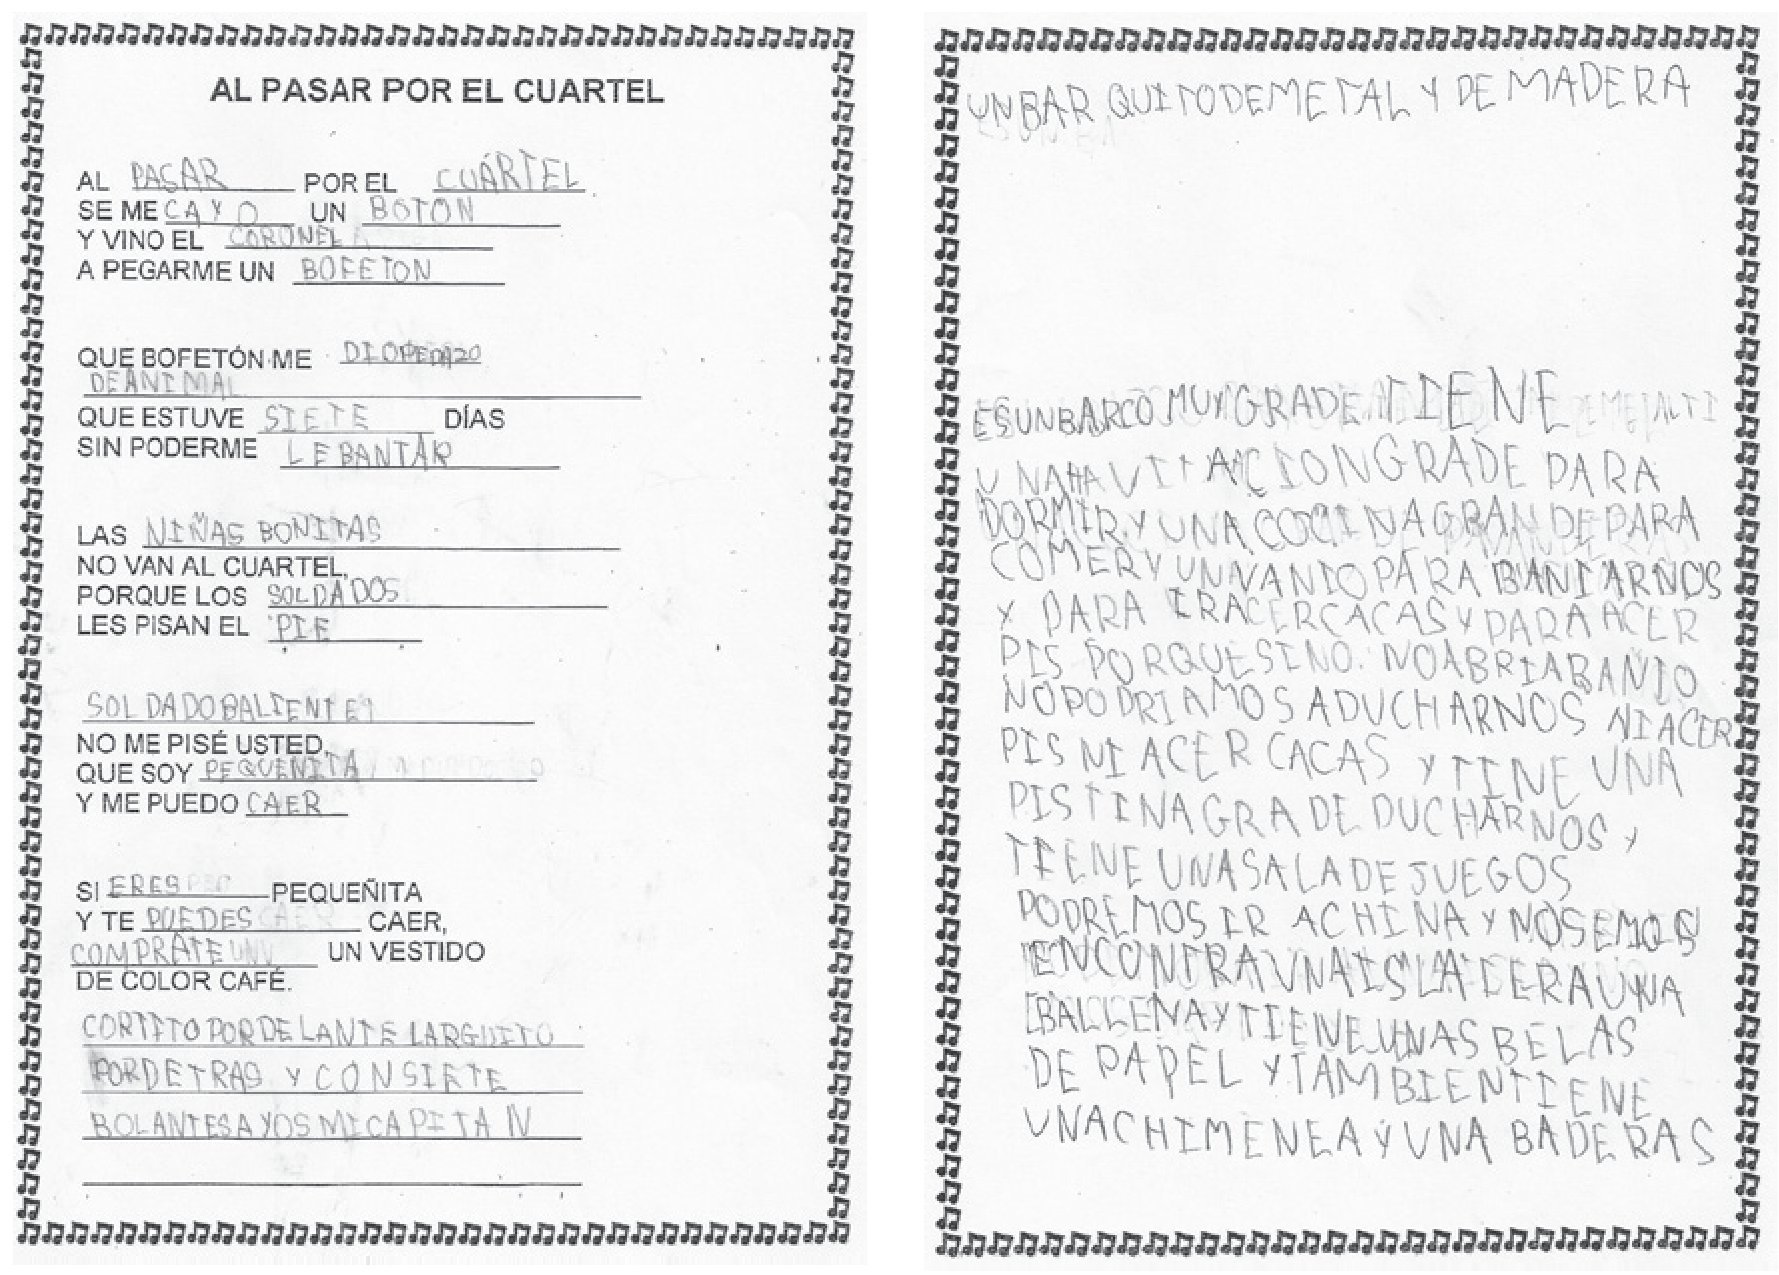 AL PASAR POR EL CUARTEL
AL PASAR POR EL CUÁRTEL
SE ME CAYO UN BOTON
Y VINO EL CORONEL
A PEGARME UN BOFETON
QUE BOFETÓN ME DIOPEDAZO
DEANIMAL
QUE ESTUVE SIETE DÍAS
SIN PODERME LEBANTAR
LAS NIÑAS BONITAS
NO VAN AL CUARTEL,
PORQUE LOS SOLDADOS
LES PISAN EL PIE
SOLDADOBALIENTE
NO ME PISÉ USTED,
QUE SOY PEQUENITA
Y ME PUEDO CAER
SI ERES PEQUEÑITA
Y TE PUEDES CAER,
COMPRATE UN VESTIDO
DE COLOR CAFÉ.
CORTITO PORDELANTE LARGUITO
PORDETRAS Y CONSIETE
BOLANTESAYOSMICAPITAN
UNBARQUITODEMETAL Y DE MADERA
ESUNBARCO MUYGRADE TIENE
UNAHAVITACIONGRADE PARA
DORMIR.YUNA COCINAGRANDEPARA
COMERYUNVANIOPARA BANIARNOS
Y PARA IRACERCACASYPARA ACER
PIS PORQUESINO. NOABRIABANIO
NOPODRIAMOSADUCHARNOS NIACER
PIS NI ACER CACAS YTINE UNA
PISTINAGRADE DUCHARNOS Y
TIENE UNASALADEJUEGOS
PODREMOS IR ACHINA Y NOSEMOS
ENCONTRAUNAISLA
BALLENAYTIENEUNAS BELAS
DE PAPEL YTAMBIENTIENE
UNACHIMENEAYUNA BADERAS